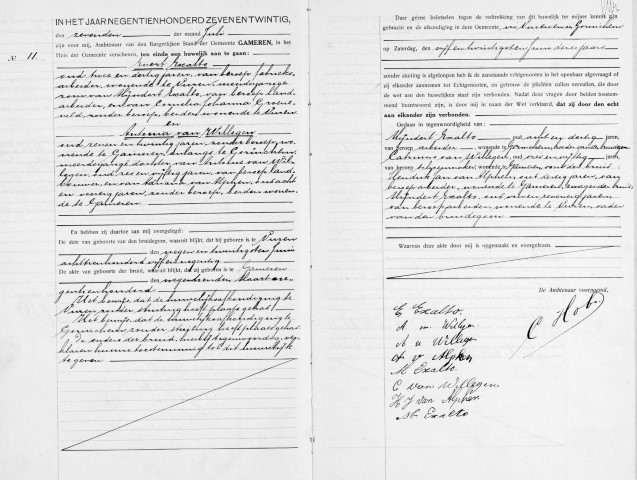 IN HET JAAR NEGENTIENHONDERD ZEVEN EN TWINTIG,
den zevenden der maand Juli
zijn voor mij, Ambtenaar van den Burgerlijken Stand der Gemeente GAMEREN, in het
Huis der Gemeente verschenen, ten einde een huwelijk aan te gaan:
No 11.
Evert Exalto
oud twee en dertig jaren, van beroep fabrieks-
arbeider, wonende te Vuren, meerderjarige
zoon van Mijndert Exalto, van beroep land-
arbeider, en van Cornelia Johanna Groene-
veld, zonder beroep, beiden wonende te Vuren
en
Antonia van Willigen
oud zeven en twintig jaren, zonder beroep, wo-
nende te Gameren, onlangs te Gorinchem,
meerderjarige dochter van Antonie van Wil-
ligen, oud zes en vijftig jaren, van beroep land-
bouwer, en van Adriana van Alphen, oud acht
en veertig jaren, zonder beroep, beiden wonen-
de te Gameren
En hebben zij daartoe aan mij overgelegd:
De akte van geboorte des bruidegoms, waaruit blijkt, dat hij geboren is te Vuren
den negen en twintigsten Juni
achttienhonderd vijf en negentig
De akte van geboorte der bruid, waaruit blijkt, dat zij geboren is te Gameren
den negentienden Maart ne-
gentienhonderd
Het bewijs, dat de huwelijksafkondiging te
Vuren zonder stuiting heeft plaats gehad.
Het bewijs, dat de huwelijksafkondiging te
Gorinchem zonder stuiting heeft plaats gehad.
De ouders der bruid, hierbij tegenwoordig, ver-
klaren hunne toestemming tot dit huwelijk
te geven
Daar geene beletselen tegen de voltrekking van dit huwelijk te mijner kennis zijn
gebracht en de afkondiging in deze Gemeente, en Vuren en Gorinchem
op Zaterdag, den vijf en twintigsten Juni dezes jaars
zonder stuiting is afgeloopen heb ik de aanstaande echtgenooten in het openbaar afgevraagd of
zij elkander aannemen tot Echtgenooten, en getrouw de plichten zullen vervullen, die
door de wet aan den huwelijken staat zijn verbonden. Nadat deze vragen door beiden toestem-
mend beantwoord zijn, is door mij in naam der Wet verklaard, dat zij door den echt
aan elkander zijn verbonden.
Gedaan in tegenwoordigheid van:
Mijndert Exalto, oud acht en dertig jaren,
van beroep arbeider, wonende te Gorinchem, broeder van den bruidegom
Catrinus van Willigen, oud vijftig jaren,
van beroep wonende te Gameren, oom der bruid
Hendrik Jan van Alphen, oud dertig jaren, van
beroep arbeider, wonende te Gameren, zwager der bruid
Mijndert Exalto, oud zeventig jaren,
van beroep arbeider, wonende te Vuren, vader
van den bruidegom
Waarvan deze akte door mij is opgemaakt en voorgelezen.
De Ambtenaar voornoemd,
E Exalto
A v Willigen
A v Willigen
A v Alphen
M Exalto
C van Willegen
H J van Alphen
M Exalto